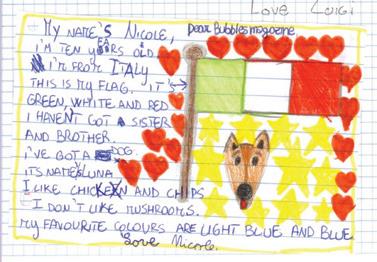 Love Luigi
Dear Bubbles magazine,
My NAME'S NICOLE,
I'M TEN YEARS OLD
I'M FROM ITALY
THIS IS MY FLAG. IT'S
GREEN, WHITE AND RED
I HAVEN'T GOT A SISTER
AND BROTHER.
I'VE GOT A DOG.
ITS NAME'S LUNA
I LIKE CHICKEN AND CHIPS
I DON'T LIKE MUSHROOMS.
MY FAVOURITE COLOURS ARE LIGHT BLUE AND BLUE
Love Nicole.